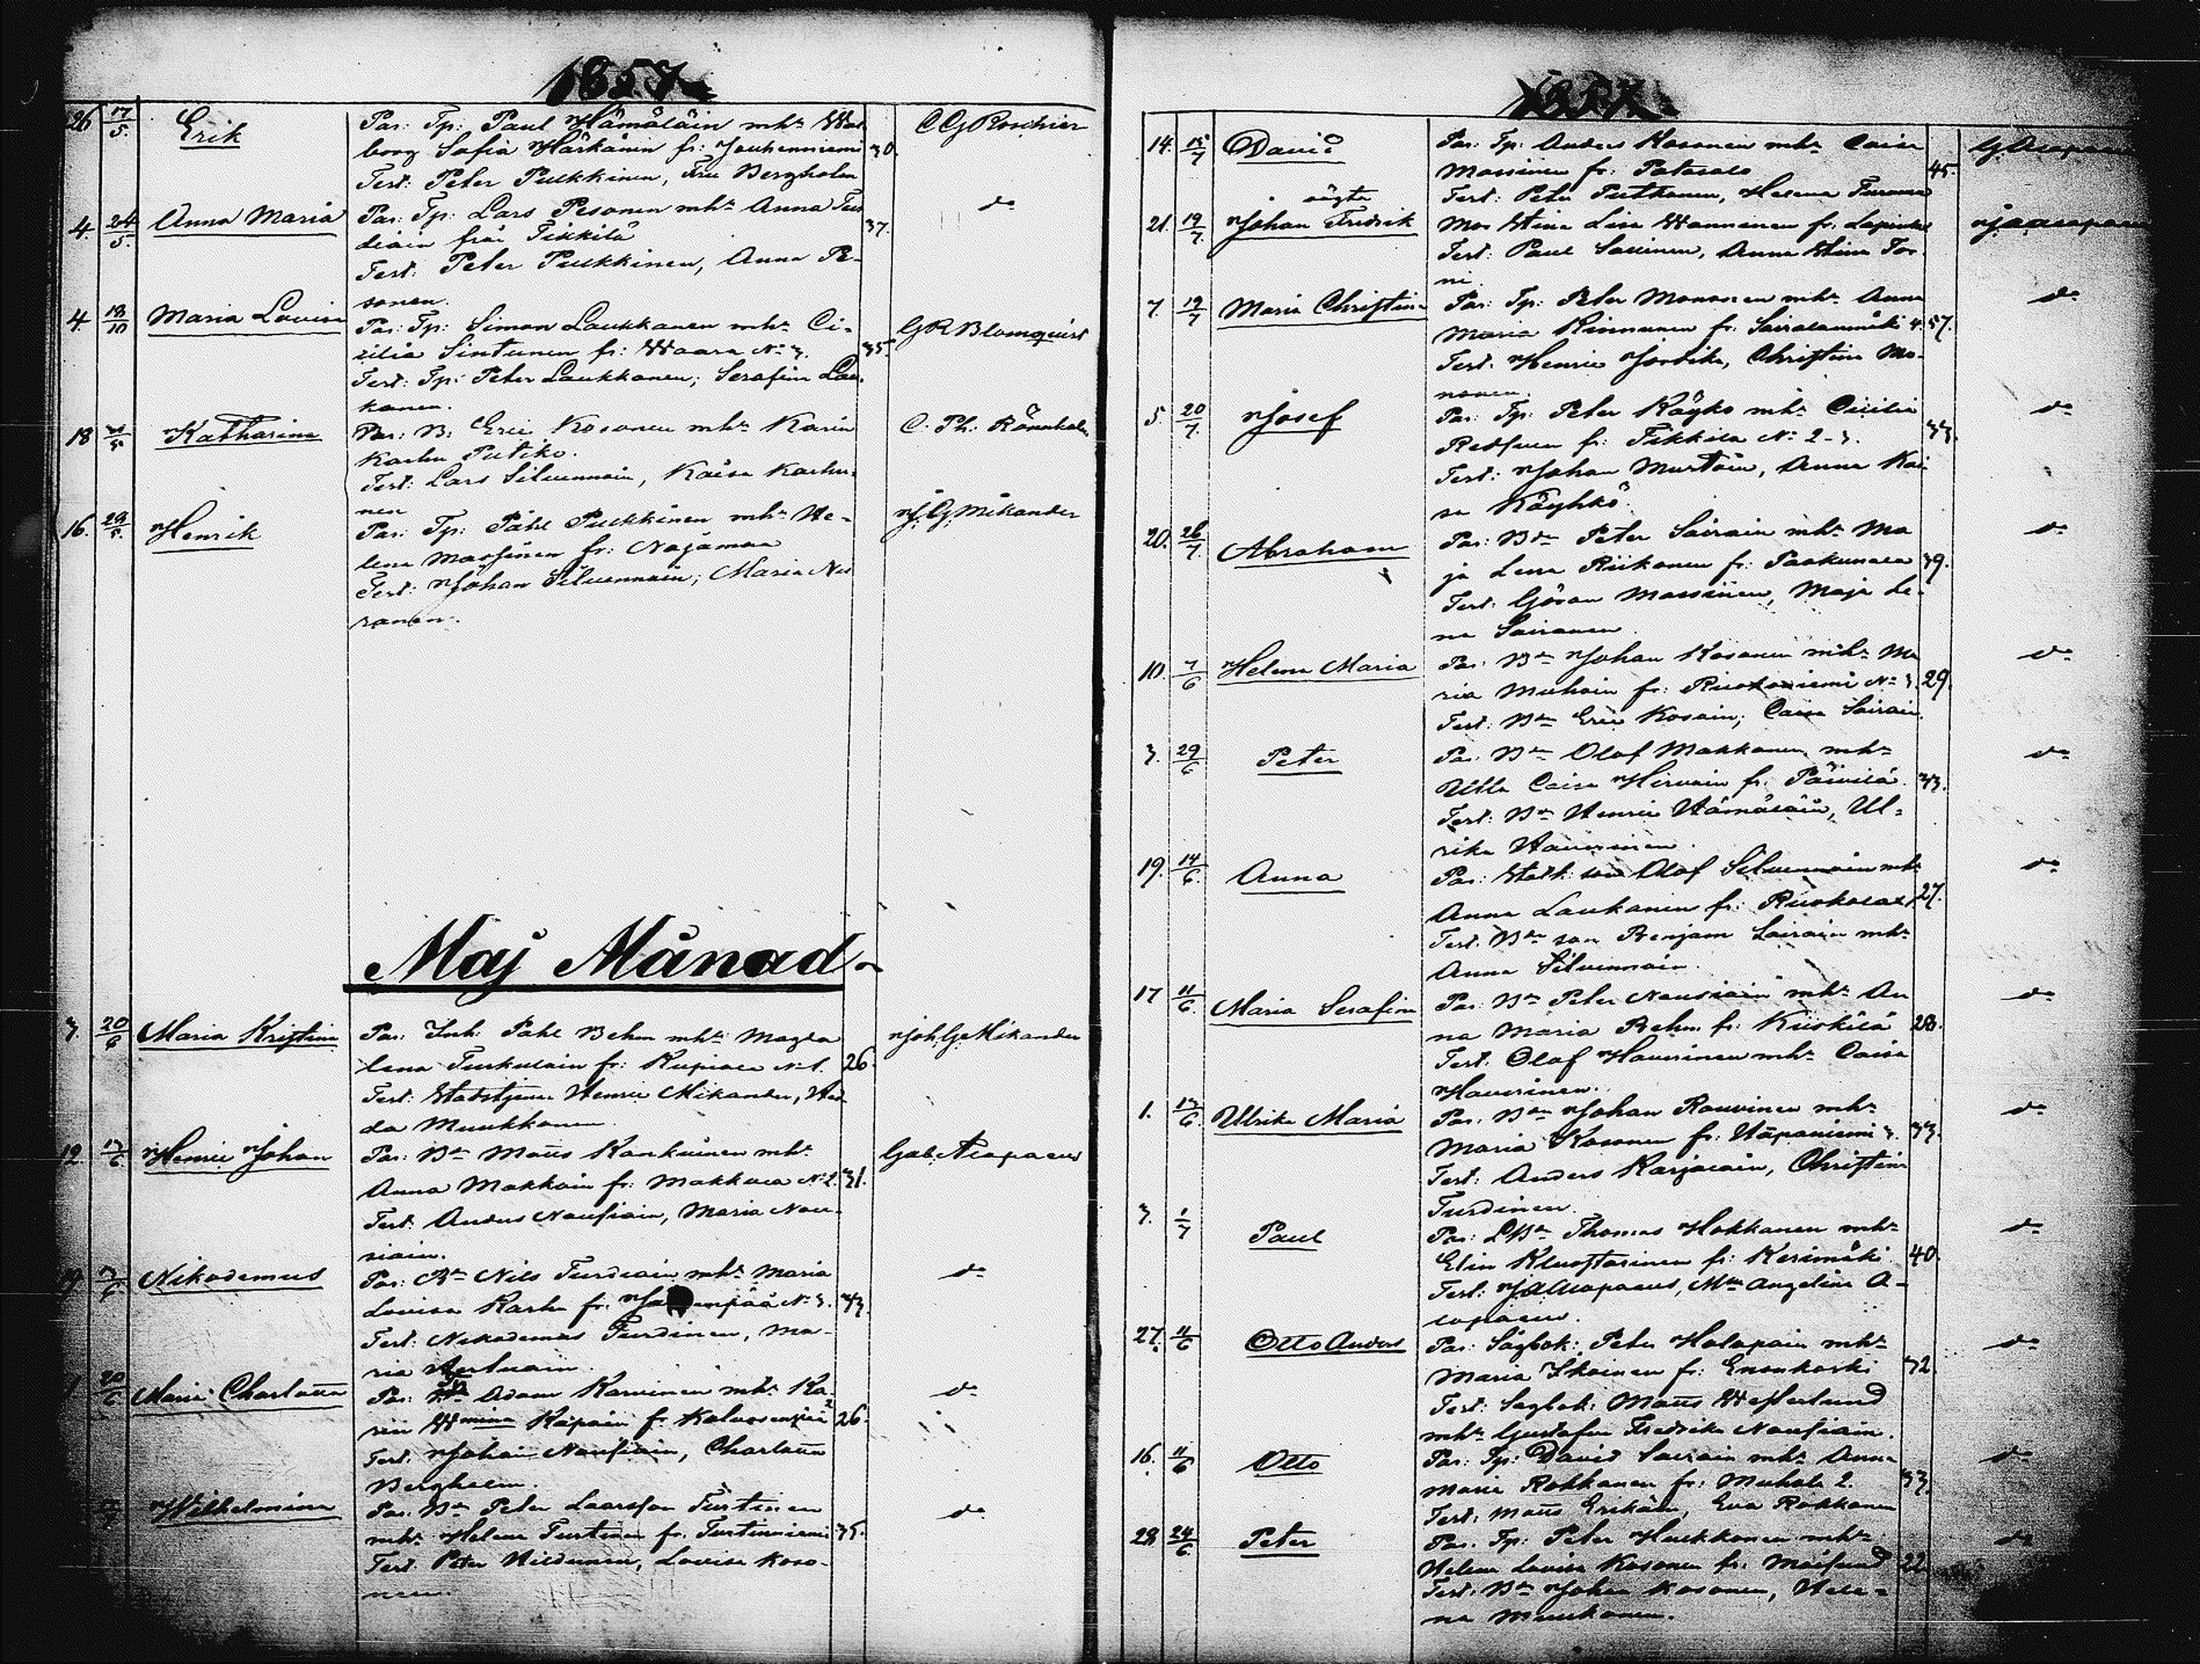 1857
26 17/5. Erik
Par: Tp: Paul Hämäläin mh: Wal
borg Sofia Härkänen fr: Jouhenniemi 30.
Test: Peter Pulkkinen, Fru Bergholm
CG Roschier
4. 24/5. Anna Maria
Par: Tp: Lars Pesonen mh: Anna Tur
diain från Tikkilä 37.
Test: Peter Pulkkinen, Anna Pe-
sonen.
do
4. 18/10 Maria Lovisa
Par: Tp: Simon Laukkanen mh: Ci-
cilia Sintunen fr: Waara No 3. 35.
Test: Tp: Peter Laukkanen; Serafin Lau-
kanen.
GR Blomquist
18 Katharina
Par: B: Eric Kosonen mh: Karin
Karhu Putiko.
Test: Lars Silvennoin, Kaisa Karhu-
nen
C. Th. Rönnholm
16. 29/5. Henrik
Par: Tp: Påhl Pulkkinen mh: He-
lena Massinen fr: Najamaa
Test: Johan Silvennoin; Maria
ranen.
J. G. Mikander
Maj Månad
3. 20/6 Maria Kristina
Par: Inh: Påhl Behm mh: Magda
lena Turkulain fr: No 1. 26.
Test: Henric Mikander, Hed
da Muukkonen.
Joh. G. Mikander
12. 13/6 Henric Johan
Par: Bn Matts Kankuinen mh:
Anna Makkoin fr: Makkola No 2. 31.
Test: Anders Nousiain, Maria Nou-
siain.
Gab. Acopaeus
19. Nikodemus
Par: Bn Nils Turdiain mh: Maria
Lovisa Karhu fr. No 3. 43.
Test: Nikodemus Turdinen, Ma-
ria
do
1 20/6 Maria Charlotta
Par: Adam Karvinen mh: Ka-
rin Wmina Kapain fr: 26.
Test: Johan Nousiain, Charlotta
Bergholm.
do
Wilhelmina
Par: Bn Peter Larsson Turtinen
mh: Helena Turtinen fr. Turtinniemi 35.
Test: Peter Hildunen, Lovisa Koso-
nen.
do
1857.
14. 15/7 David
Par: Tp: Anders Kosonen mh: Caisa
Massinen fr: Patasalo 45.
Test: Peter Puthonen, Helena Turunen
G Acopaeus
21. 19/7. oägta Johan Fredrik
Mor Stina Lisa Wänninen fr. Lapinlax
Test: Paul Savinen, Anna Stina Tor-
ni.
G Acopaeus
7. 19/7 Maria Christina
Par: Tp: Peter Mononen mh: Anna
Maria Kinnunen fr. Sairalanmäki 4. 57.
Test: Henric Christina Mo-
nonen.
do
5. 20/7. Josef
Par: Tp: Peter Käyhö mh: Cicilia
Redsven fr: Tikkilä No 2-3. 33.
Test: Johan Murtoin, Anna Kai
sa Käyhkö.
do
20. 26/7 Abraham
Par: Bdn Peter Sairain mh: Ma
ja Lena Riikonen fr: Paakunala 39.
Test: Göran Massinen, Maja Le-
na Sairanen.
do
10. 7/6 Helena Maria
Par: Bn Johan Kosonen mh: Ma
ria Muhoin fr: Ruokoniemi No 3. 29.
Test: Bn Eric Kosoin; Caisa Sairain.
do
3. 29/6 Peter
Par: Bn Olof Makkonen mh:
Ulla Caisa Hirvoin fr. Päivilä. 33.
Test: Bn Henric Hämäläin, Ul-
rika Haverinen.
do
19. 14/6. Anna
Par: son Olof Silvennoin mh:
Anna Laukanen fr: Ruokolax 27.
Test. Bn son Benjam Sairain mh:
Anna Silvennoin.
do
17 11/6. Maria Serafina
Par: Bn Peter Nousiain mh: An
na Maria Behm fr: Kiiskilä 28.
Test. Olof Haverinen mh: Caisa
Haverinen.
do
1. 13/6 Ulrika Maria
Par: Bn Johan Rouvinen mh:
Maria Kosonen fr: Haapaniemi 3. 33.
Test: Anders Karjalain, Christina
Turdinen.
do
3. 1/7 Paul
Par: LBn Thomas Hokkanen mh:
Elin Kluuftarinen fr: Kerimäki 40.
Test: JA Acopaeus, Mll Angelina A-
copaeus.
do
27. 11/6 Otto Anders
Par: Sågbok: Peter Holopain mh:
Maria Ikoinen fr: Enonkoski 32.
Test: Sagbok: Matts Westerlund
mh: Gustafva Fredrika Nousiain.
do
16. 11/6 Otto
Par: Tp: David Sairain mh: Anna
Maria Rokkanen fr: Muhola 2. 33.
Test: Matts Erikäin, Eva Rokkanen
do
28 24/6. Peter
Par. Tp: Peter Hukkonen mh:
Helena Lovisa Kosonen fr: Moisund 22
Test: Bn Johan Kosonen, Hele-
na Muukonen.
do